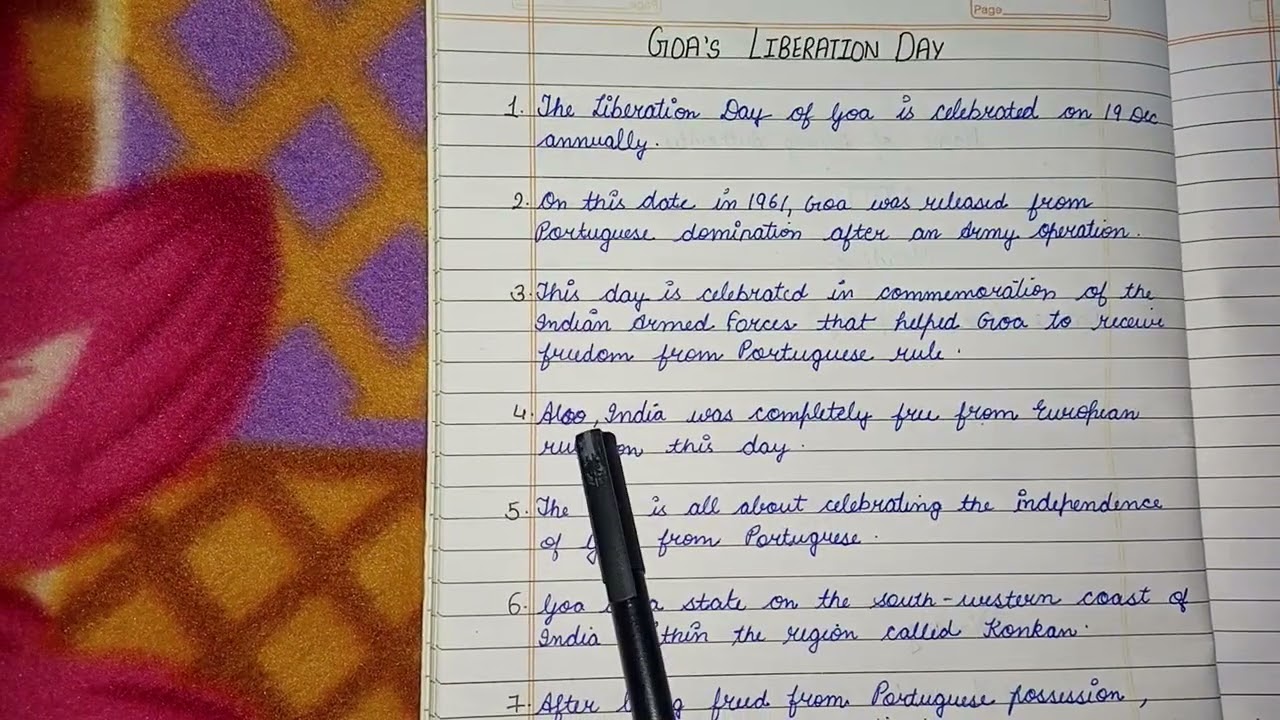 Page
GOA'S LIBERATION DAY
1. The Liberation Day of Goa is celebrated on 19 Dec
annually.
2. On this date in 1961, Goa was released from
Portuguese domination after an army operation.
3. This day is celebrated in commemoration of the
Indian Armed Forces that helped Goa to receive
freedom from Portuguese rule.
4. Also, India was completely free from European
on this day.
5. The is all about celebrating the independence
of from Portuguese.
6. Goa a state on the south-western coast of
India the region called Konkan.
7. After freed from Portuguese possession,